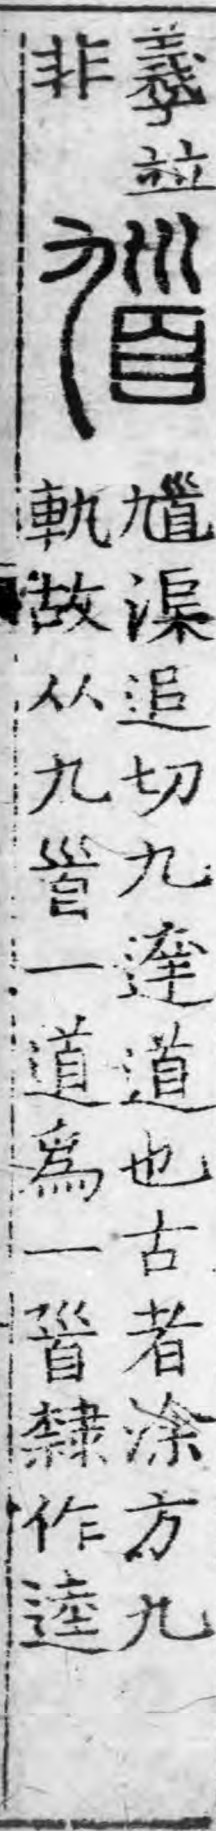 義並
非
馗
馗渠追切九達道也古者涂方九
軌故从九𩠐一道爲一𩠐隸作逵